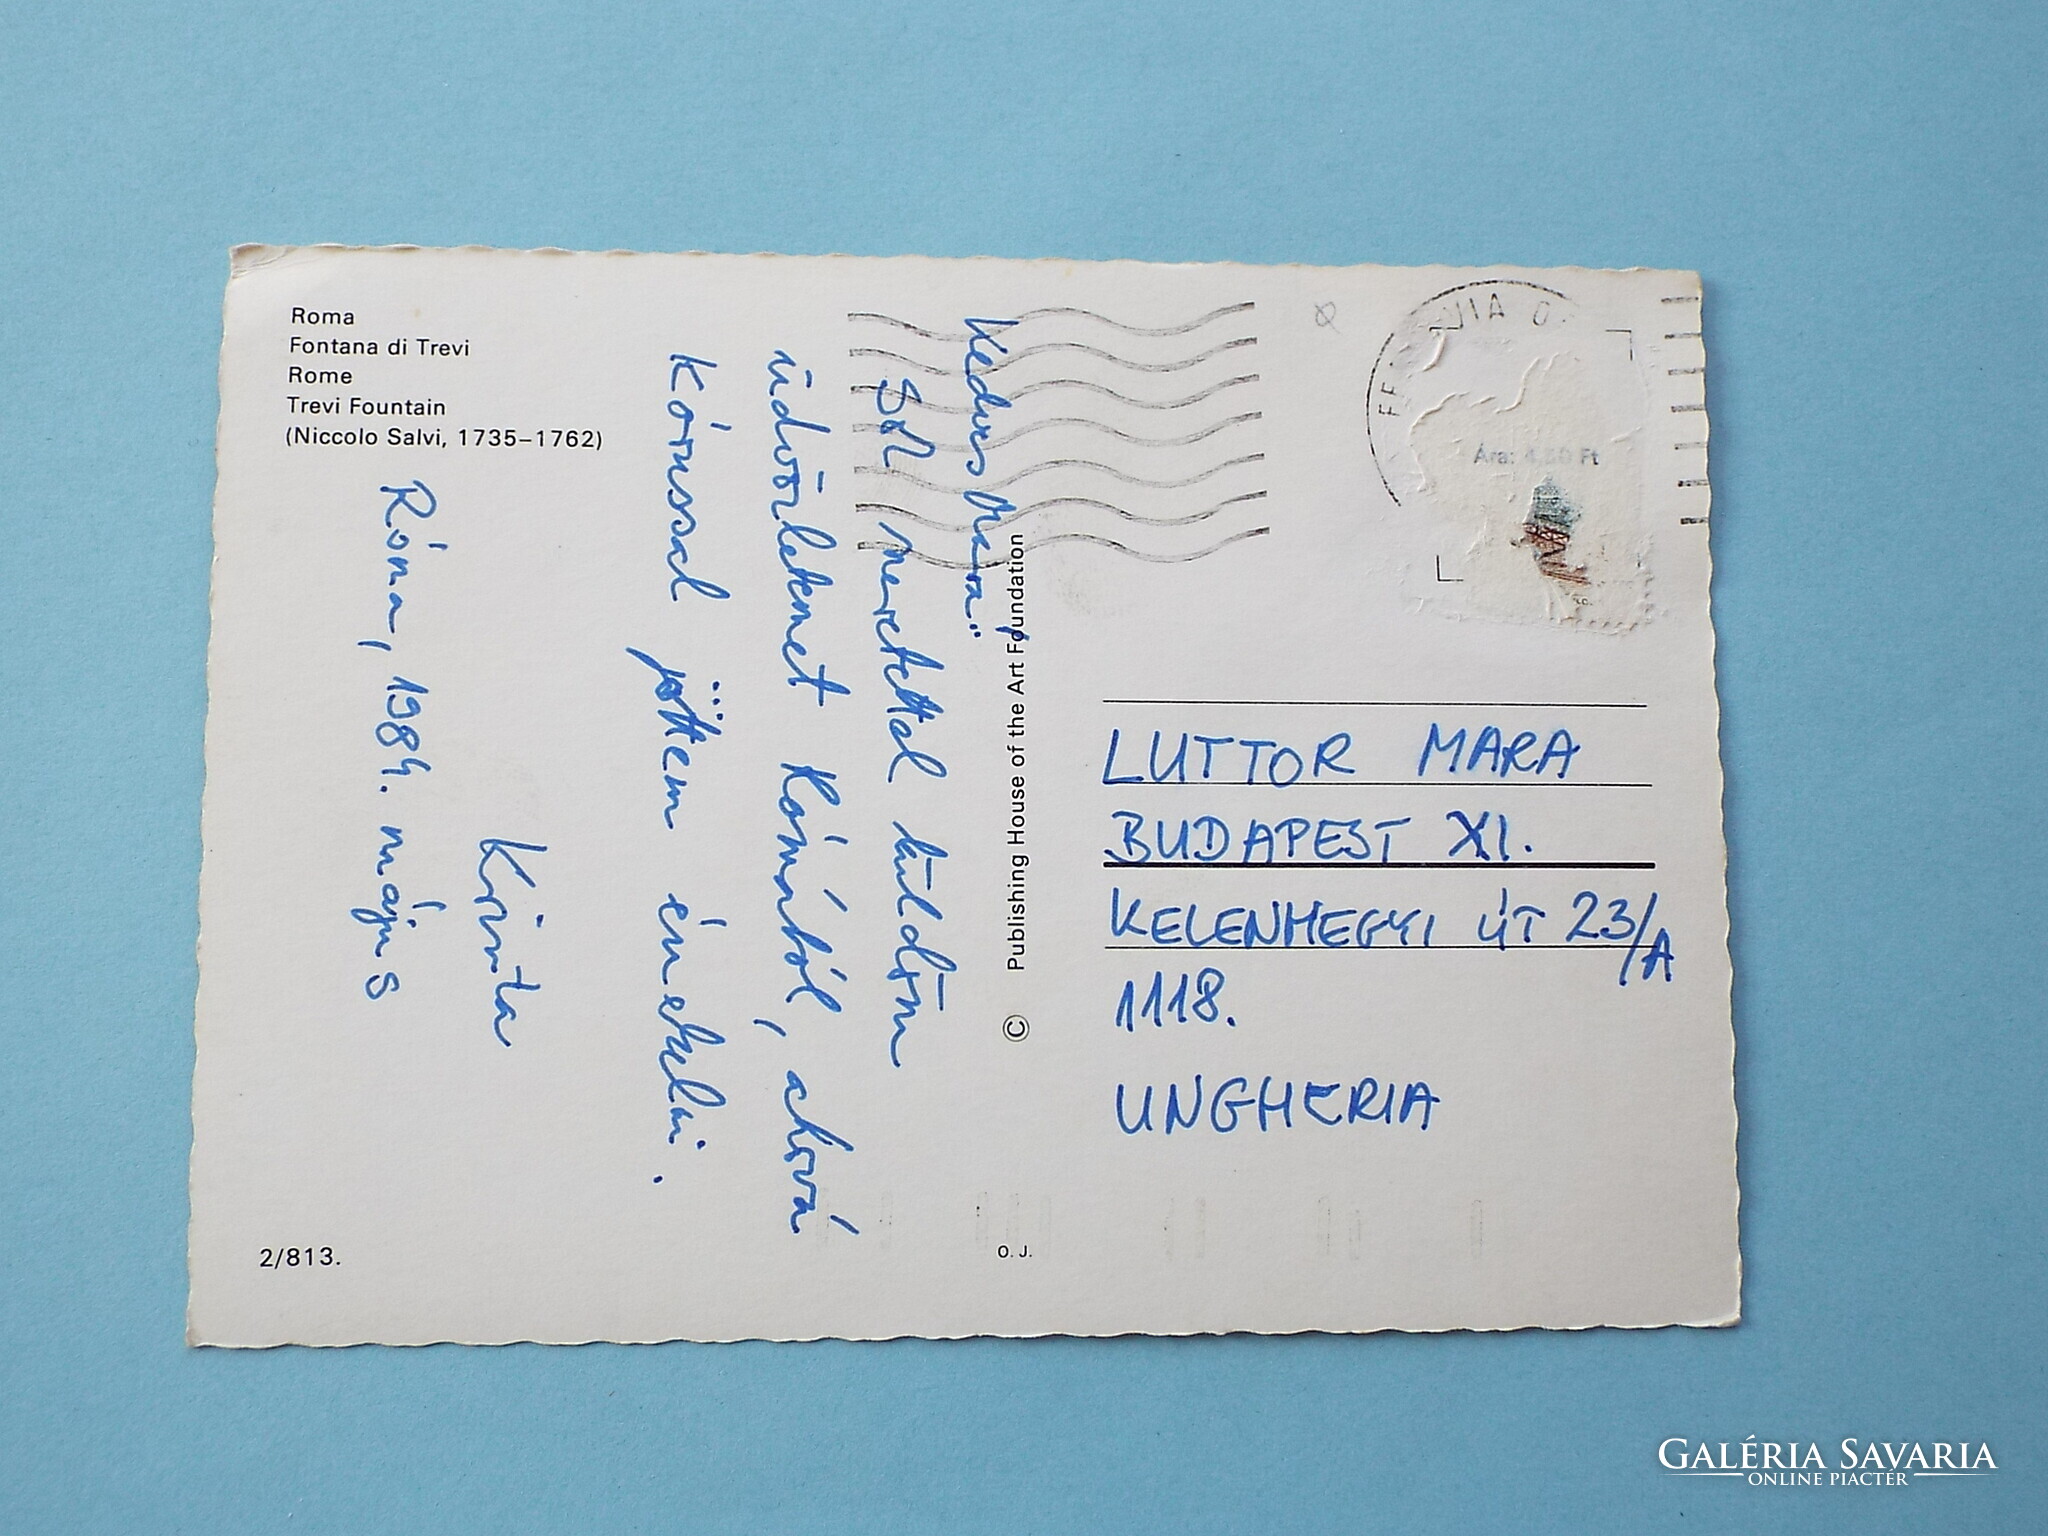 Roma
Fontana di Trevi
Rome
Trevi Fountain
(Niccolo Salvi, 1735–1762)
Kedves Mara!
Sok szeretettel küldöm
üdvözletemet Rómából, ahová
Kórussal jöttem énekelni.
Krista
Róma, 1984. május
2/813.
© Publishing House of the Art Foundation
O. J.
Ára: 4,50 Ft
LUTTOR MARA
BUDAPEST XI.
KELENHEGYI ÚT 23/A
1118.
UNGHERIA
GALÉRIA SAVARIA
ONLINE PIACTÉR